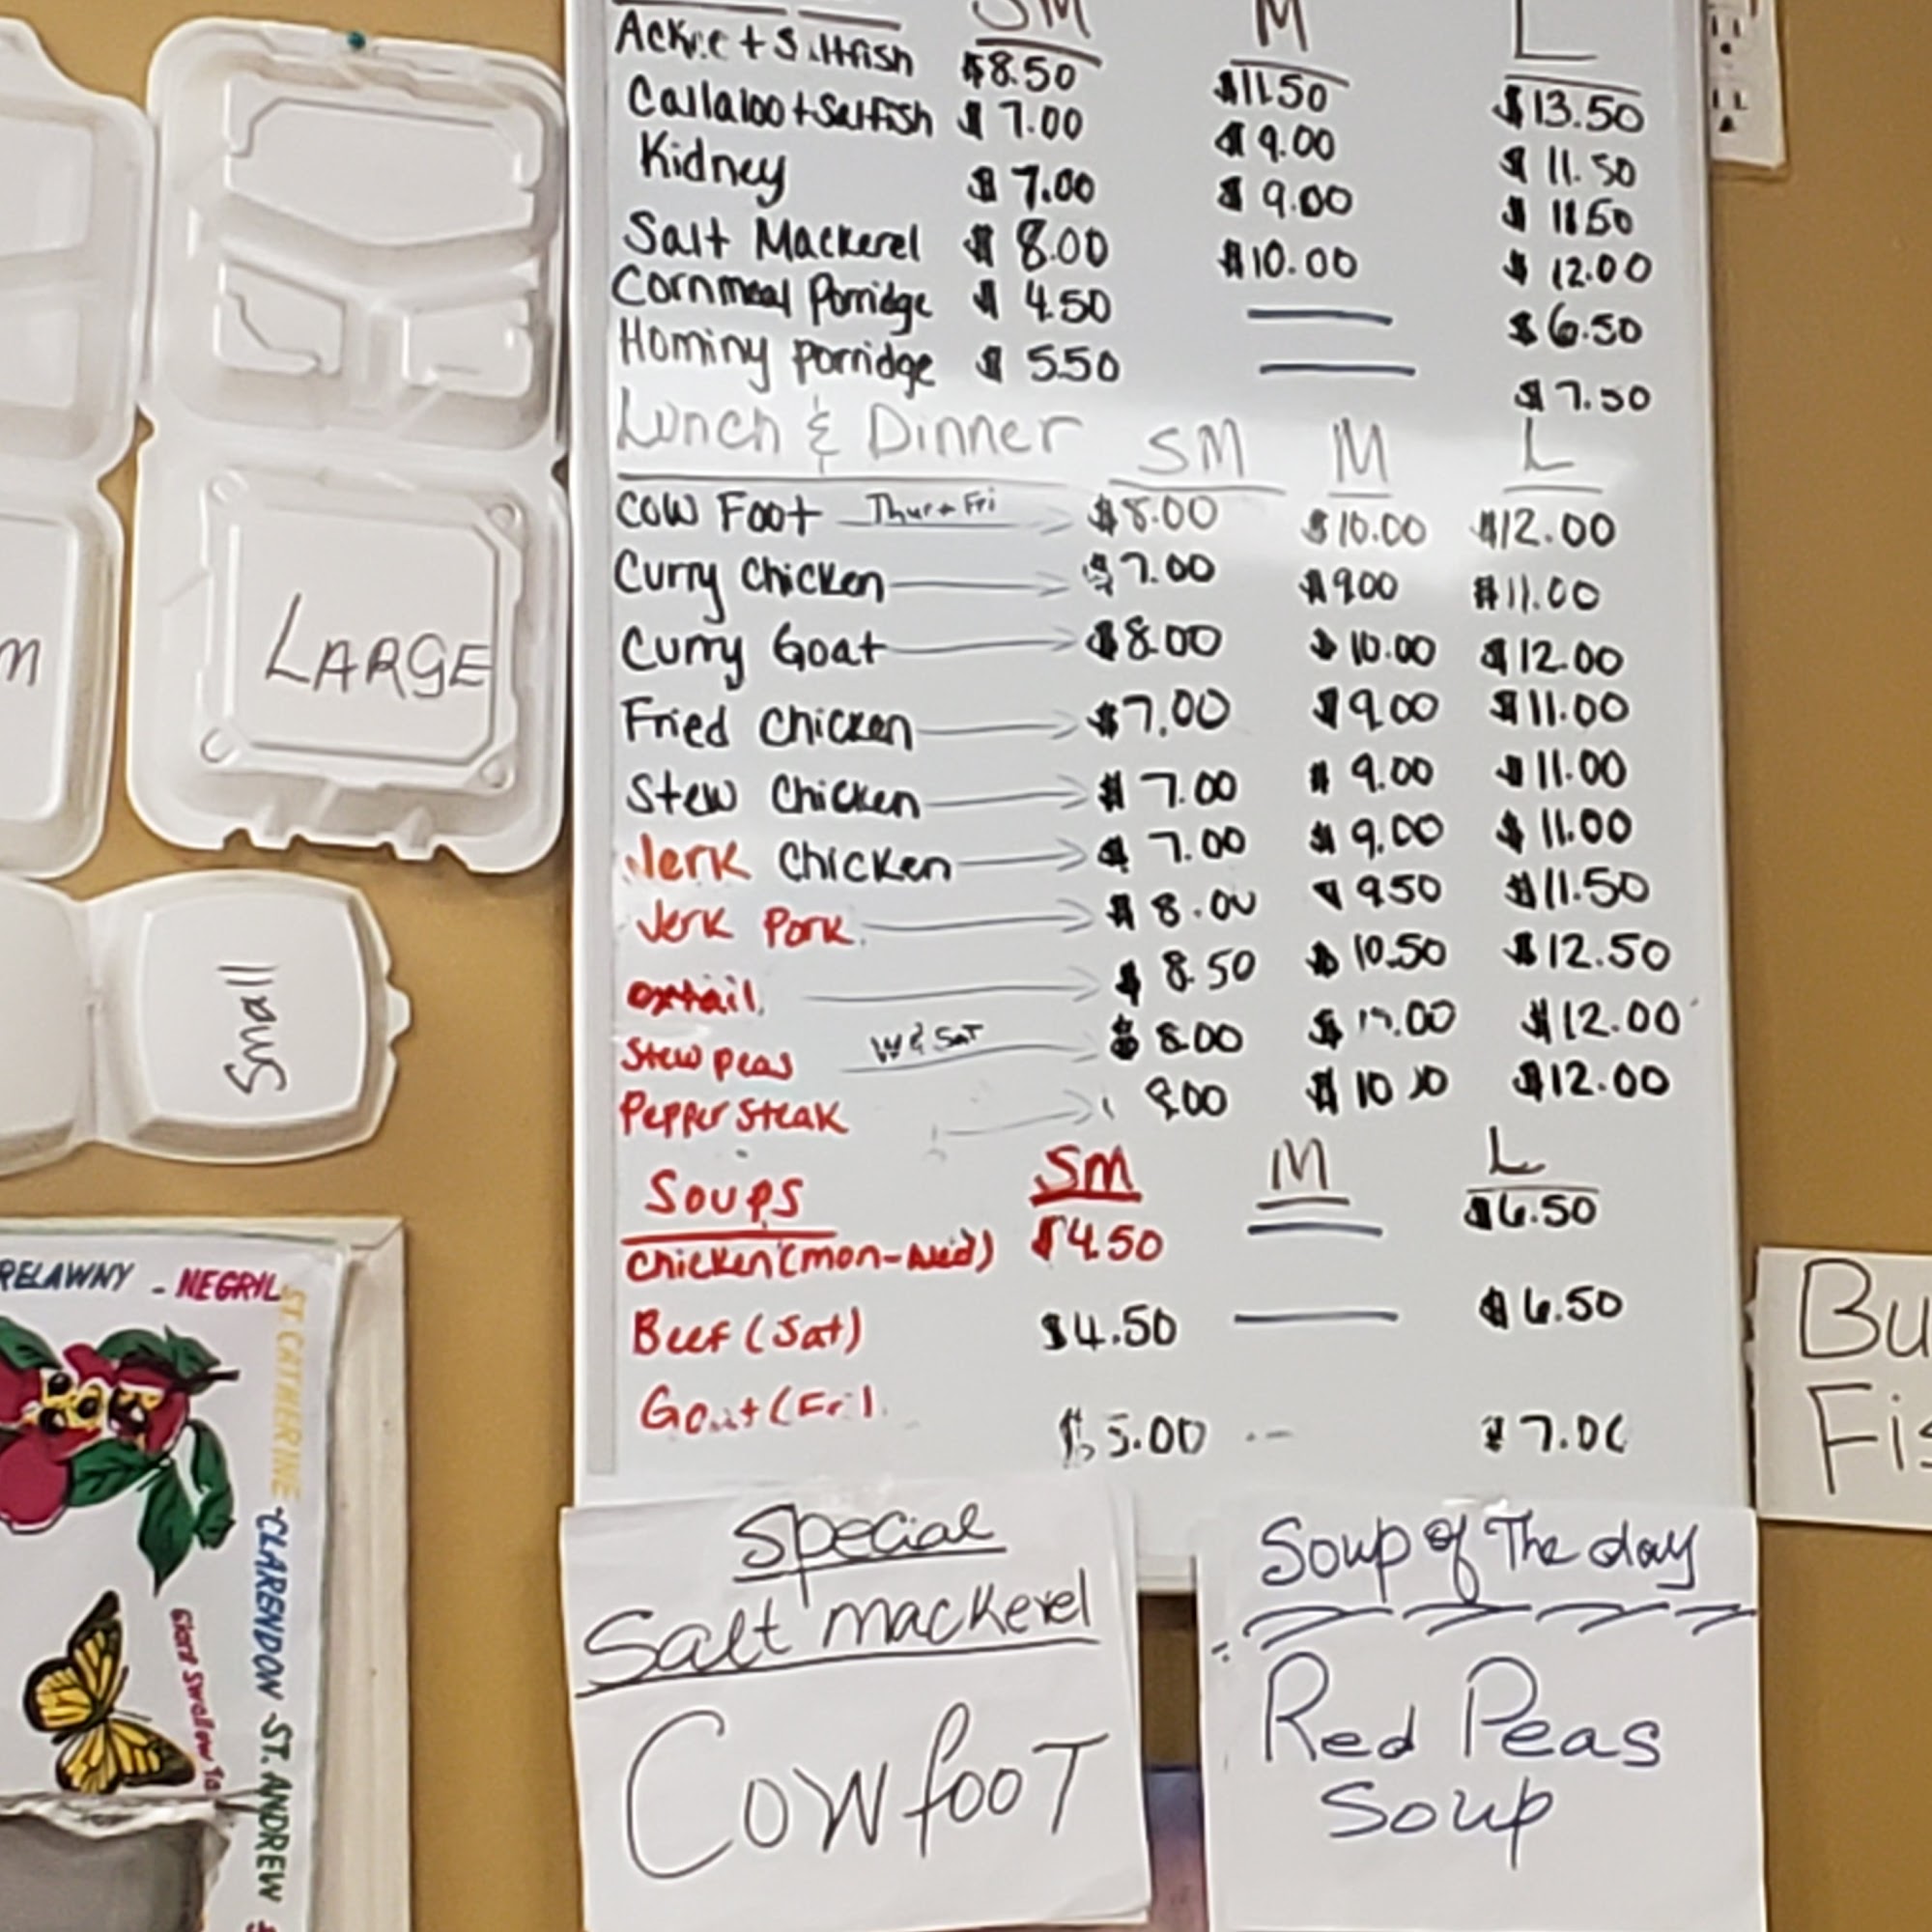 SM M L
Ackee + Saltfish $8.50 $11.50 $13.50
Callaloo + Saltfish $7.00 $9.00 $11.50
Kidney $7.00 $9.00 $11.50
Salt Mackerel $8.00 $10.00 $12.00
Cornmeal Porridge $4.50 $6.50
Hominy porridge $5.50 $7.50
Lunch & Dinner SM M L
Cow Foot Thur + Fri $8.00 $10.00 $12.00
Curry Chicken $7.00 $9.00 $11.00
Curry Goat $8.00 $10.00 $12.00
Fried Chicken $7.00 $9.00 $11.00
Stew Chicken $7.00 $9.00 $11.00
Jerk Chicken $7.00 $9.00 $11.00
Jerk Pork $8.00 $9.50 $11.50
oxtail $8.50 $10.50 $12.50
Stew peas W & Sat $8.00 $12.00
Pepper Steak $12.00
Soups SM M L
Chicken (mon-wed) $4.50 $6.50
Beef (Sat) $4.50 $6.50
Goat (Fri) $5.00 $7.00
Special
Salt mackerel
Cow foot
Soup of The day
Red Peas
Soup
LARGE
m
Small
RELAWNY - NEGRIL
ST. CATHERINE - CLARENDON - ST. ANDREW
Giant Swallow Ta
Bu
Fis